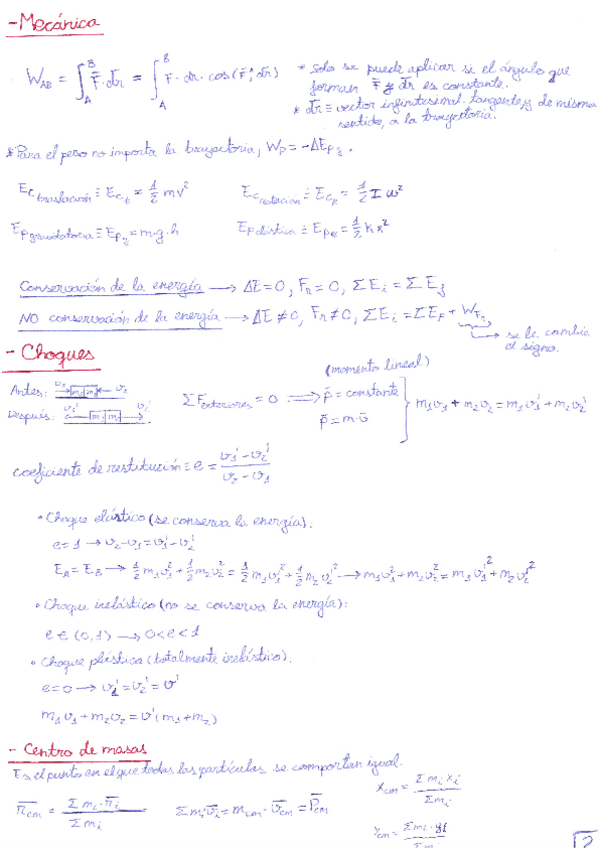 -Mecánica
W_AB = ∫_A^B F̄·d̄r = ∫_A^B F·dr·cos(F̄,^d̄r) * Solo se puede aplicar si el ángulo que
forman F̄ y d̄r es constante.
* d̄r ≡ vector infinitesimal tangente y de mismo
sentido, a la trayectoria.
* Para el peso no importa la trayectoria, W_P = -ΔE_Pg.
Ec traslación ≡ Ec_t = 1/2 mv² Ec rotación ≡ Ec_R = 1/2 I ω²
Ep gravitatoria ≡ Ep_g = m·g·h Ep elástica ≡ Ep_e = 1/2 K x²
Conservación de la energía → ΔE=0, F_R=0, ΣE_i = ΣE_f
NO conservación de la energía → ΔE≠0, F_R≠0, ΣE_i = ΣE_F + W_FR
→ se le cambia
el signo.
- Choques
(momento lineal)
Antes: v₁ m₁ m₂ v₂
ΣF exteriores = 0 ⟹ p̄ = constante
p̄ = m·v̄
m₁v₁ + m₂v₂ = m₁v₁' + m₂v₂'
Después: v₁' m₁ m₂ v₂'
coeficiente de restitución ≡ e = (v₁' - v₂')/(v₂ - v₁)
• Choque elástico (se conserva la energía):
e=1 → v₂-v₁ = v₁'-v₂'
E_A = E_B → 1/2 m₁v₁² + 1/2 m₂v₂² = 1/2 m₁v₁'² + 1/2 m₂v₂'² → m₁v₁² + m₂v₂² = m₁v₁'² + m₂v₂'²
• Choque inelástico (no se conserva la energía):
e ∈ (0,1) → 0<e<1
• Choque plástico (totalmente inelástico).
e=0 → v₁' = v₂' = v'
m₁v₁ + m₂v₂ = v'(m₁+m₂)
- Centro de masas
Es el punto en el que todas las partículas se comportan igual.
x_cm = Σm_i x_i / Σm_i
r̄_cm = Σm_i·r̄_i / Σm_i Σm_i v̄_i = m_cm · v̄_cm = P̄_cm
y_cm = Σm_i·y_i / Σm_i
2